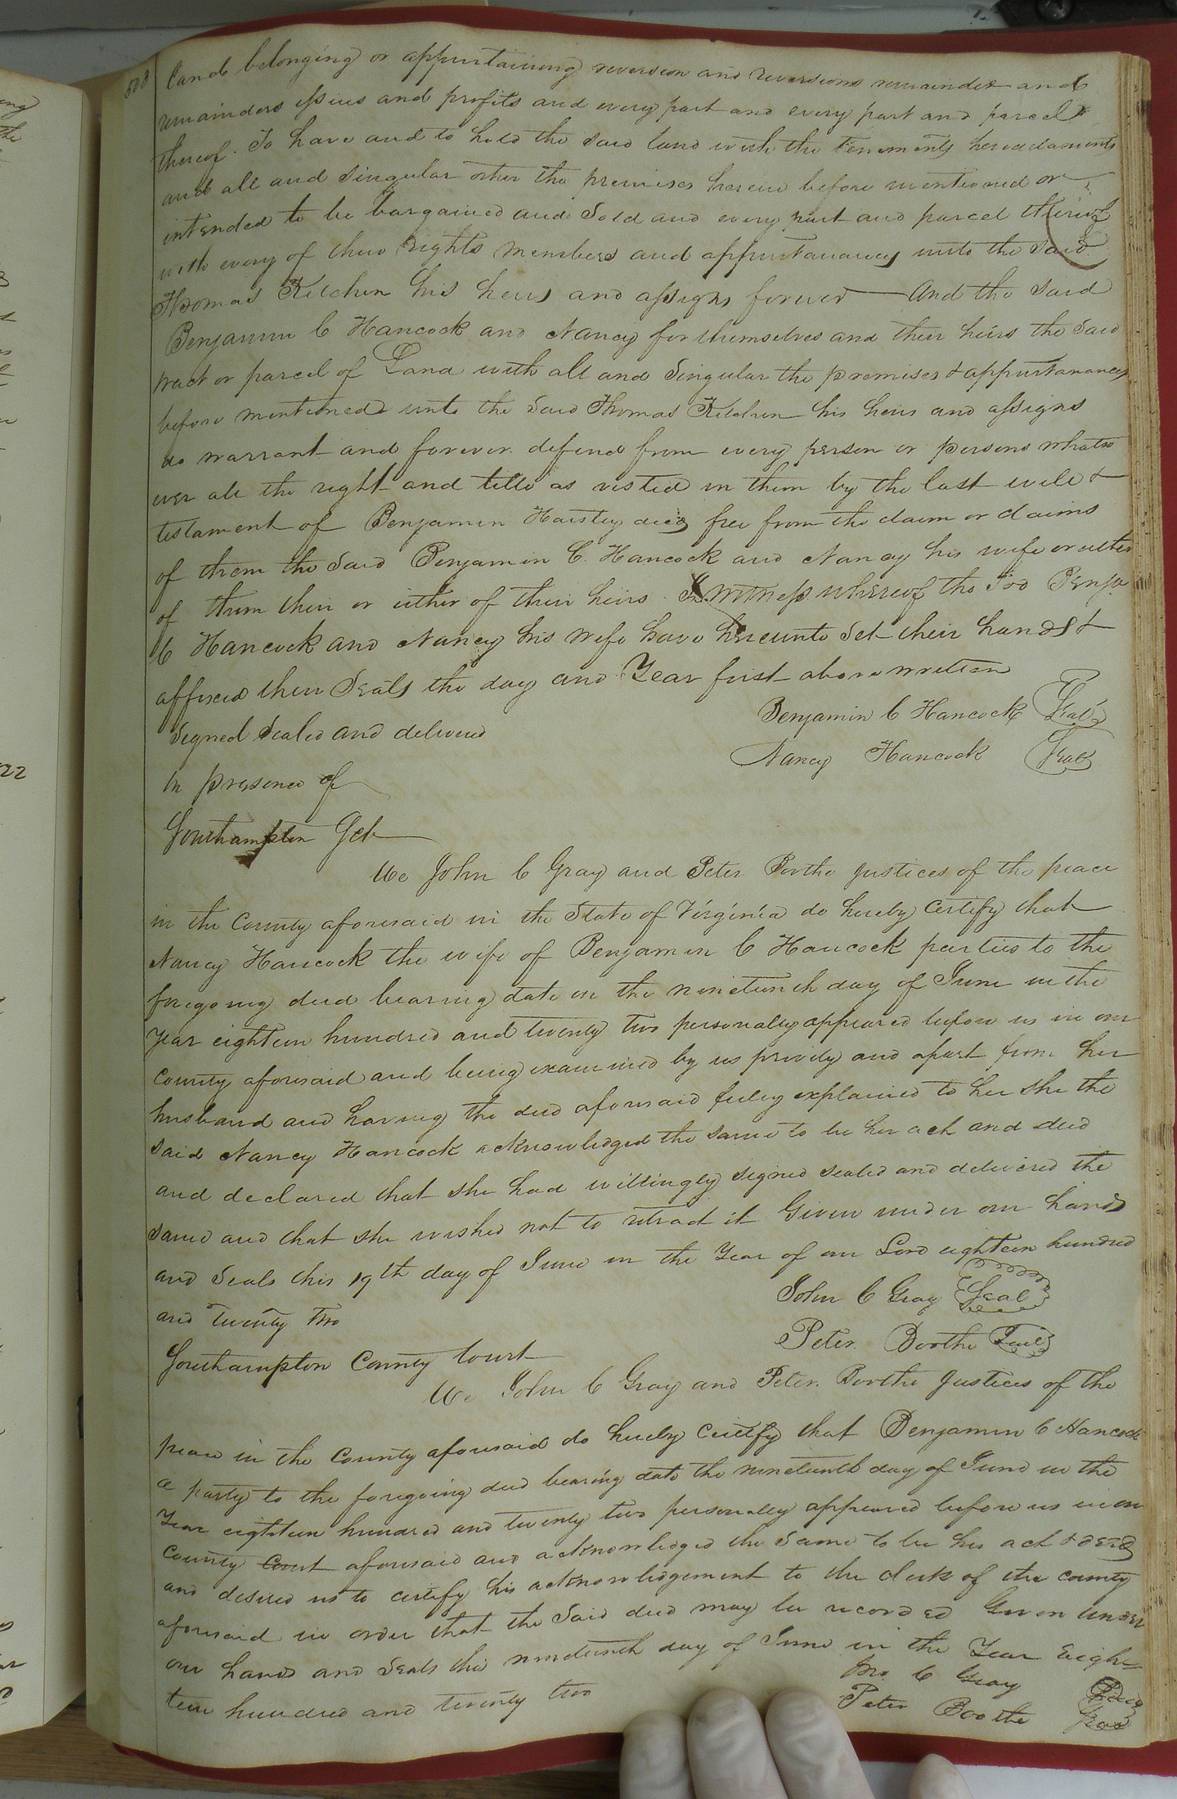 Land belonging or appurtaining reversion and reversions remainder and
remainders issues and profits and every part and every part and parcel
thereof. To have and to hold the said land with the Tenements heredaments
and all and singular other the premises herein before mentioned or
intended to be bargained and Sold and every part and parcel thereof
with every of their rights members and appurtanances unto the said
Thomas Kitchen his heirs and assigns forever And the said
Benjamin C Hancock and Nancy for themselves and their heirs the said
tract or parcel of Land with all and Singular the premises & appurtanances
before mentioned unto the said Thomas Kitchen his heirs and assigns
do warrant and forever defend from every person or persons whatso
ever all the right and title as vested in them by the last will &
testament of Benjamin decd free from the claim or claims
of them the said Benjamin C. Hancock and Nancy his wife or either
of them their or either of their heirs. In Witness whereof the sd Benja
C Hancock and Nancy his wife have hereunto Set their hands &
affixed their Seals the day and Year first above written
Signed Sealed and delivered
Benjamin C Hancock Seal
Nancy Hancock Seal
in presence of
Southampton Sct
We John C Gray and Peter Boothe Justices of the peace
in the County aforesaid in the State of Virginia do hereby Certify that
Nancy Hancock the wife of Benjamin C Hancock parties to the
foregoing deed bearing date on the nineteenth day of June in the
Year eighteen hundred and twenty two personally appeared before us in our
County aforesaid and being examined by us privily and apart from her
husband and having the deed aforesaid fully explained to her she the
said Nancy Hancock acknowledged the same to be her act and deed
and declared that she had willingly signed sealed and delivered the
same and that she wished not to retract it Given under our hands
and Seals this 19th day of June in the Year of our Lord eighteen hundred
and Twenty Two
John C Gray Seal
Peter Boothe Seal
Southampton County Court
We John C Gray and Peter Boothe Justices of the
peace in the County aforesaid do hereby certify that Benjamin C Hancock
a party to the foregoing deed bearing date the nineteenth day of June in the
Year eighteen hundred and twenty two personally appeared before us in our
County Court aforesaid and acknowledged the same to be his act & deed
and desired us to certify his acknowledgement to the clerk of the county
aforesaid in order that the said deed may be recorded Given under
our hands and Seals this nineteenth day of June in the Year Eigh
teen hundred and twenty two
Jno C Gray Seal
Peter Boothe Seal